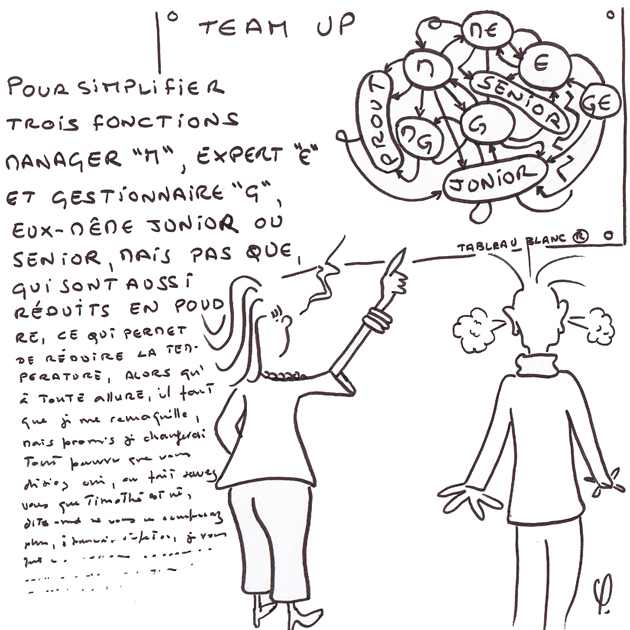 TEAM UP
POUR SIMPLIFIER
TROIS FONCTIONS
MANAGER "M", EXPERT "E"
ET GESTIONNAIRE "G",
EUX-MÊME JUNIOR OU
SENIOR, MAIS PAS QUE,
QUI SONT AUSSI
RÉDUITS EN POUD
RE, CE QUI PERMET
DE RÉDUIRE LA TEM-
PERATURE, ALORS QU'
À TOUTE ALLURE, il faut
que je me remaquille,
mais promis je changerai
Tout pourvu que vous
disiez oui, au fait savez
vous que Timothé est né,
dites-moi si vous ne comprenez
plus, je vous
ME
M
E
SENIOR
GE
PROUT
MG
G
JUNIOR
TABLEAU BLANC ®
φ.